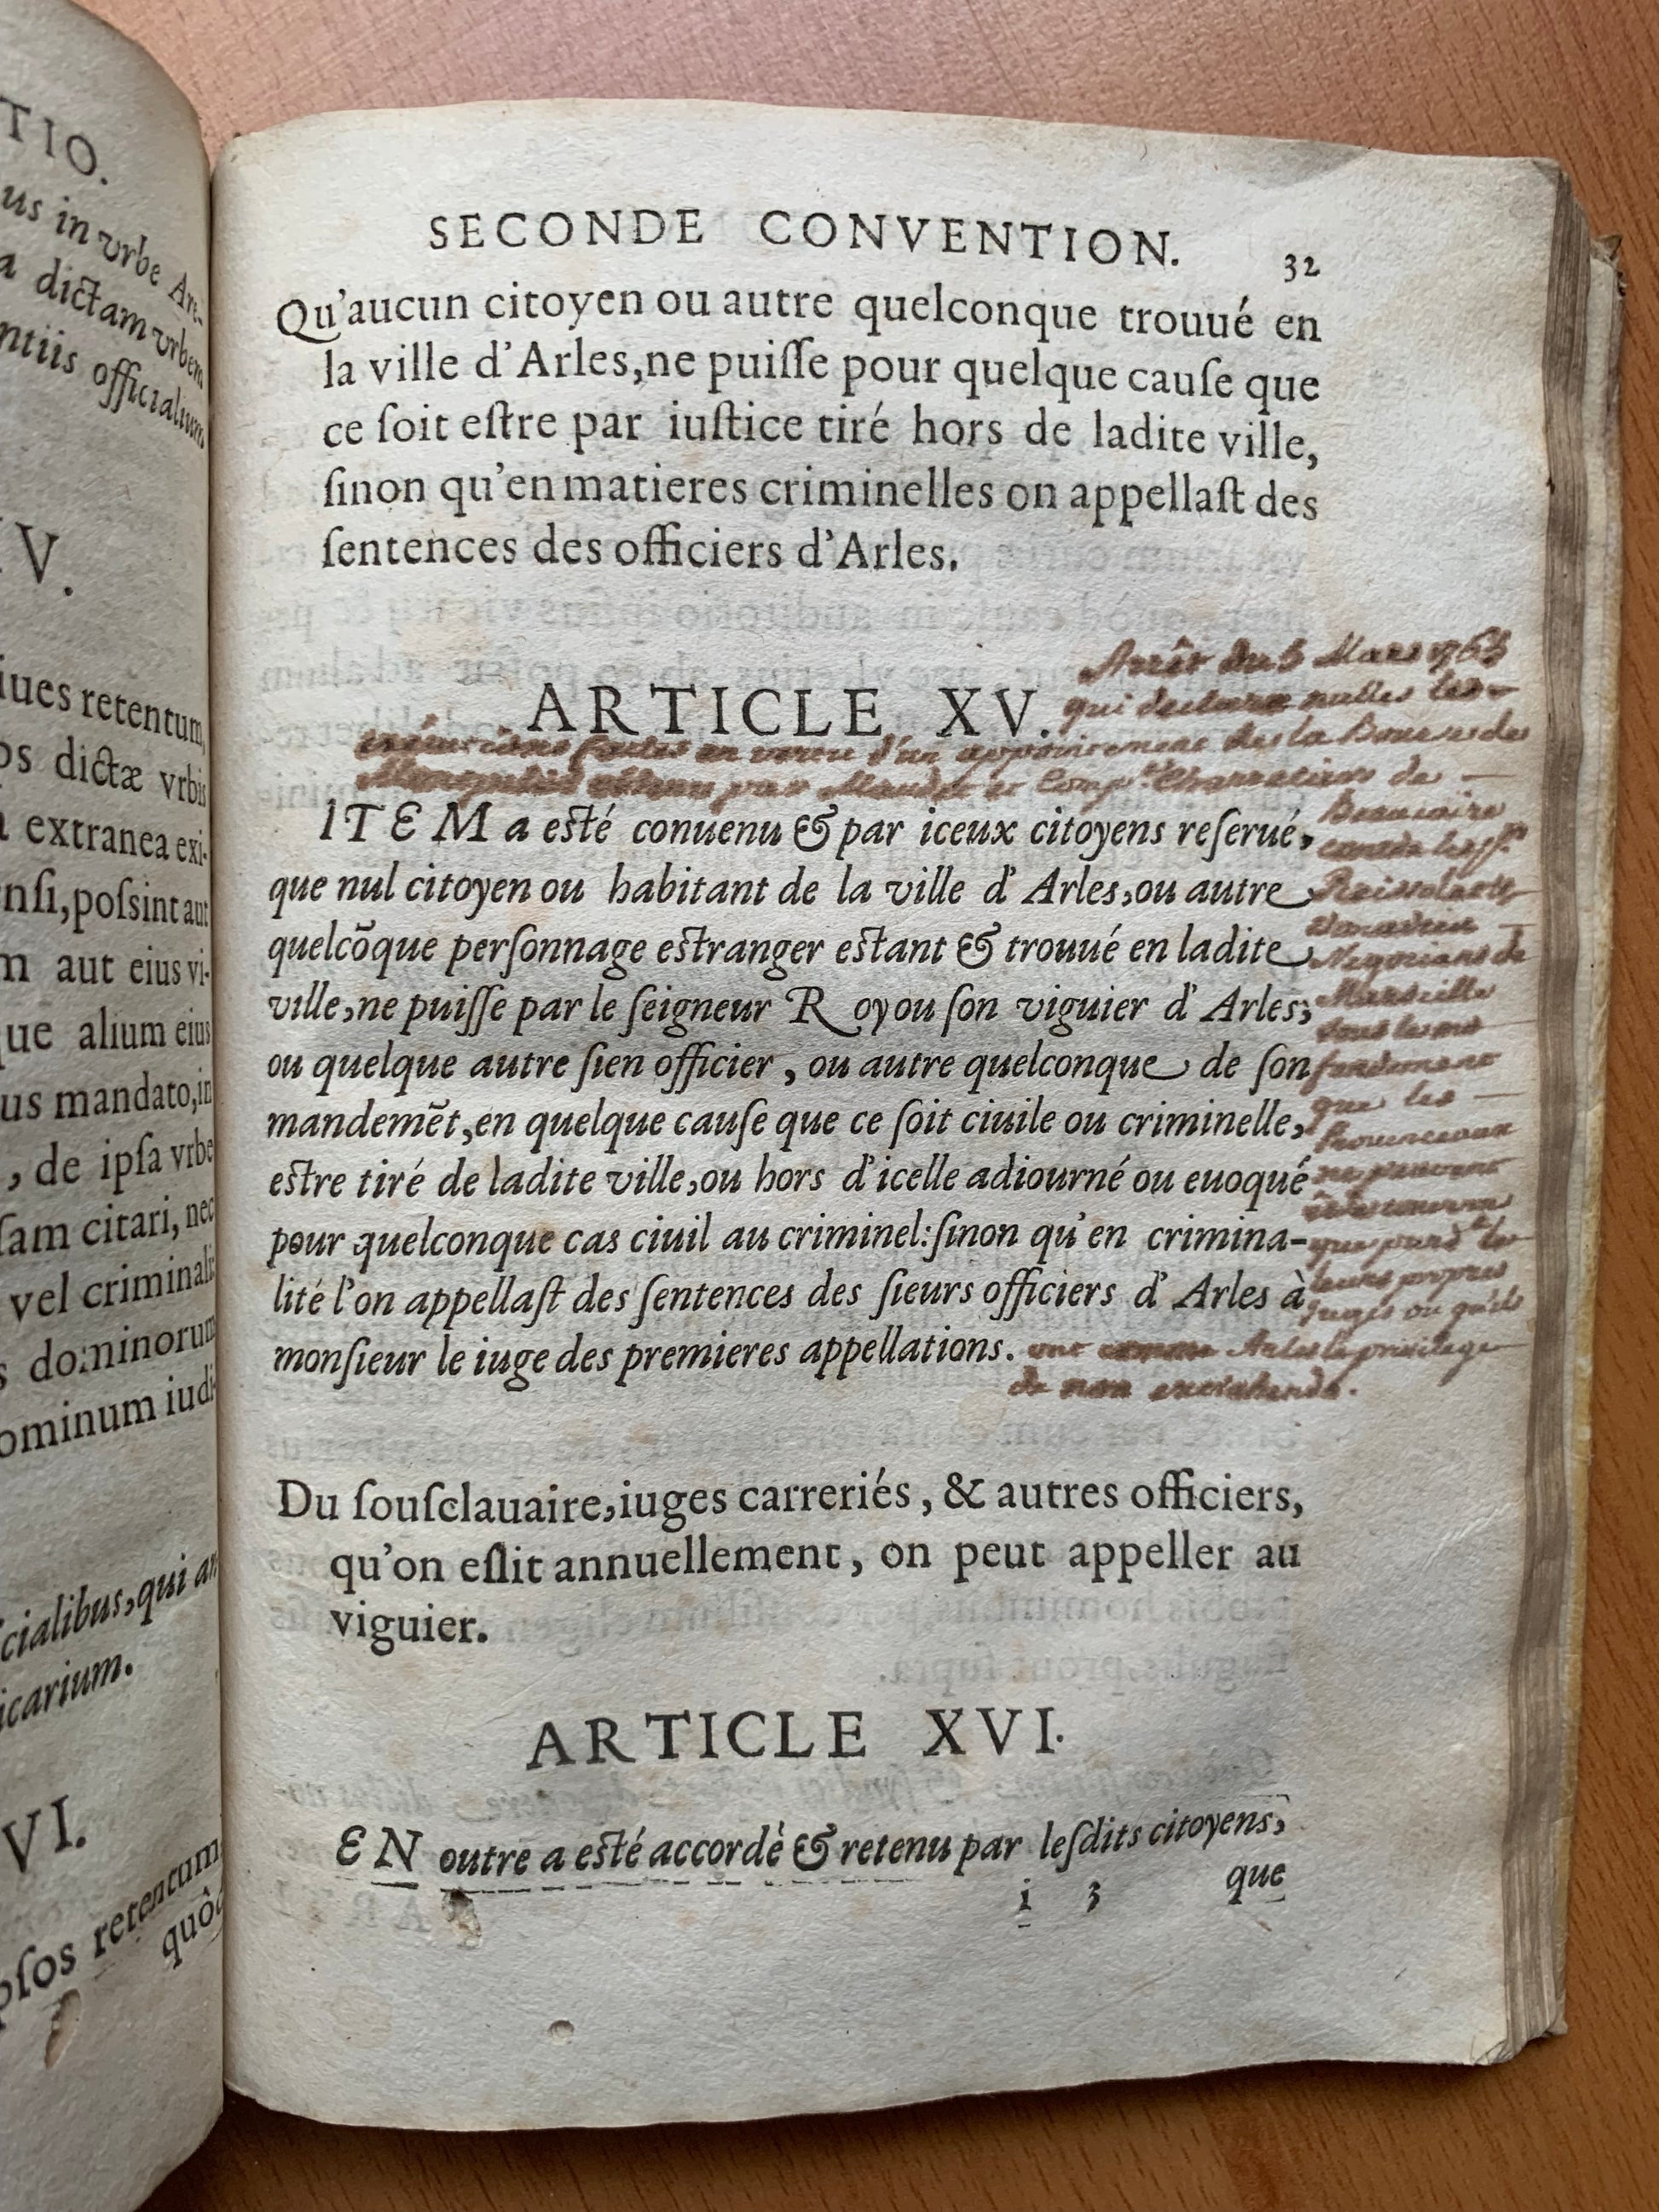 TIO.
us in vrbe Are-
a dictam vrbem
ntiis officialium
V.
iues retentum,
os dictæ vrbis
extranea exi-
nsi, possint aut
m aut eius vi-
que alium eius
us mandato, in
, de ipsa vrbe
sam citari, nec
vel criminali
s dominorum
ominum iudi-
cialibus, qui an
icarium.
VI.
psos retentum
quòd
SECONDE CONVENTION. 32
Qu'aucun citoyen ou autre quelconque trouué en
la ville d'Arles, ne puiſſe pour quelque cauſe que
ce ſoit eſtre par iuſtice tiré hors de ladite ville,
ſinon qu'en matieres criminelles on appellaſt des
ſentences des officiers d'Arles.
Arrêt du 5 Mars
qui declare nulles les
ARTICLE XV.
exécutions faites en vertu d'un appointement de la Bourse des
obtenu par Maudet et Comp.e de
ITEM a eſté conuenu & par iceux citoyens reſerué,
que nul citoyen ou habitant de la ville d'Arles, ou autre
quelcōque perſonnage eſtranger eſtant & trouué en ladite
ville, ne puiſſe par le ſeigneur Roy ou ſon viguier d'Arles;
ou quelque autre ſien officier, ou autre quelconque de ſon
mandemēt, en quelque cauſe que ce ſoit ciuile ou criminelle,
eſtre tiré de ladite ville, ou hors d'icelle adiourné ou euoqué
pour quelconque cas ciuil au criminel: ſinon qu'en crimina-
lité l'on appellaſt des ſentences des ſieurs officiers d'Arles à
monſieur le iuge des premieres appellations.
Beaucaire
Negocians de
Marseille
fondement
que les
Provenceaux
ne peuvent
leurs propres
juges ou qu'ils
ont comme Arles le privilege
de non extrahendo.
Du ſouſclauaire, iuges carreriés, & autres officiers,
qu'on eſlit annuellement, on peut appeller au
viguier.
ARTICLE XVI.
EN outre a eſté accordè & retenu par leſdits citoyens,
i 3 que